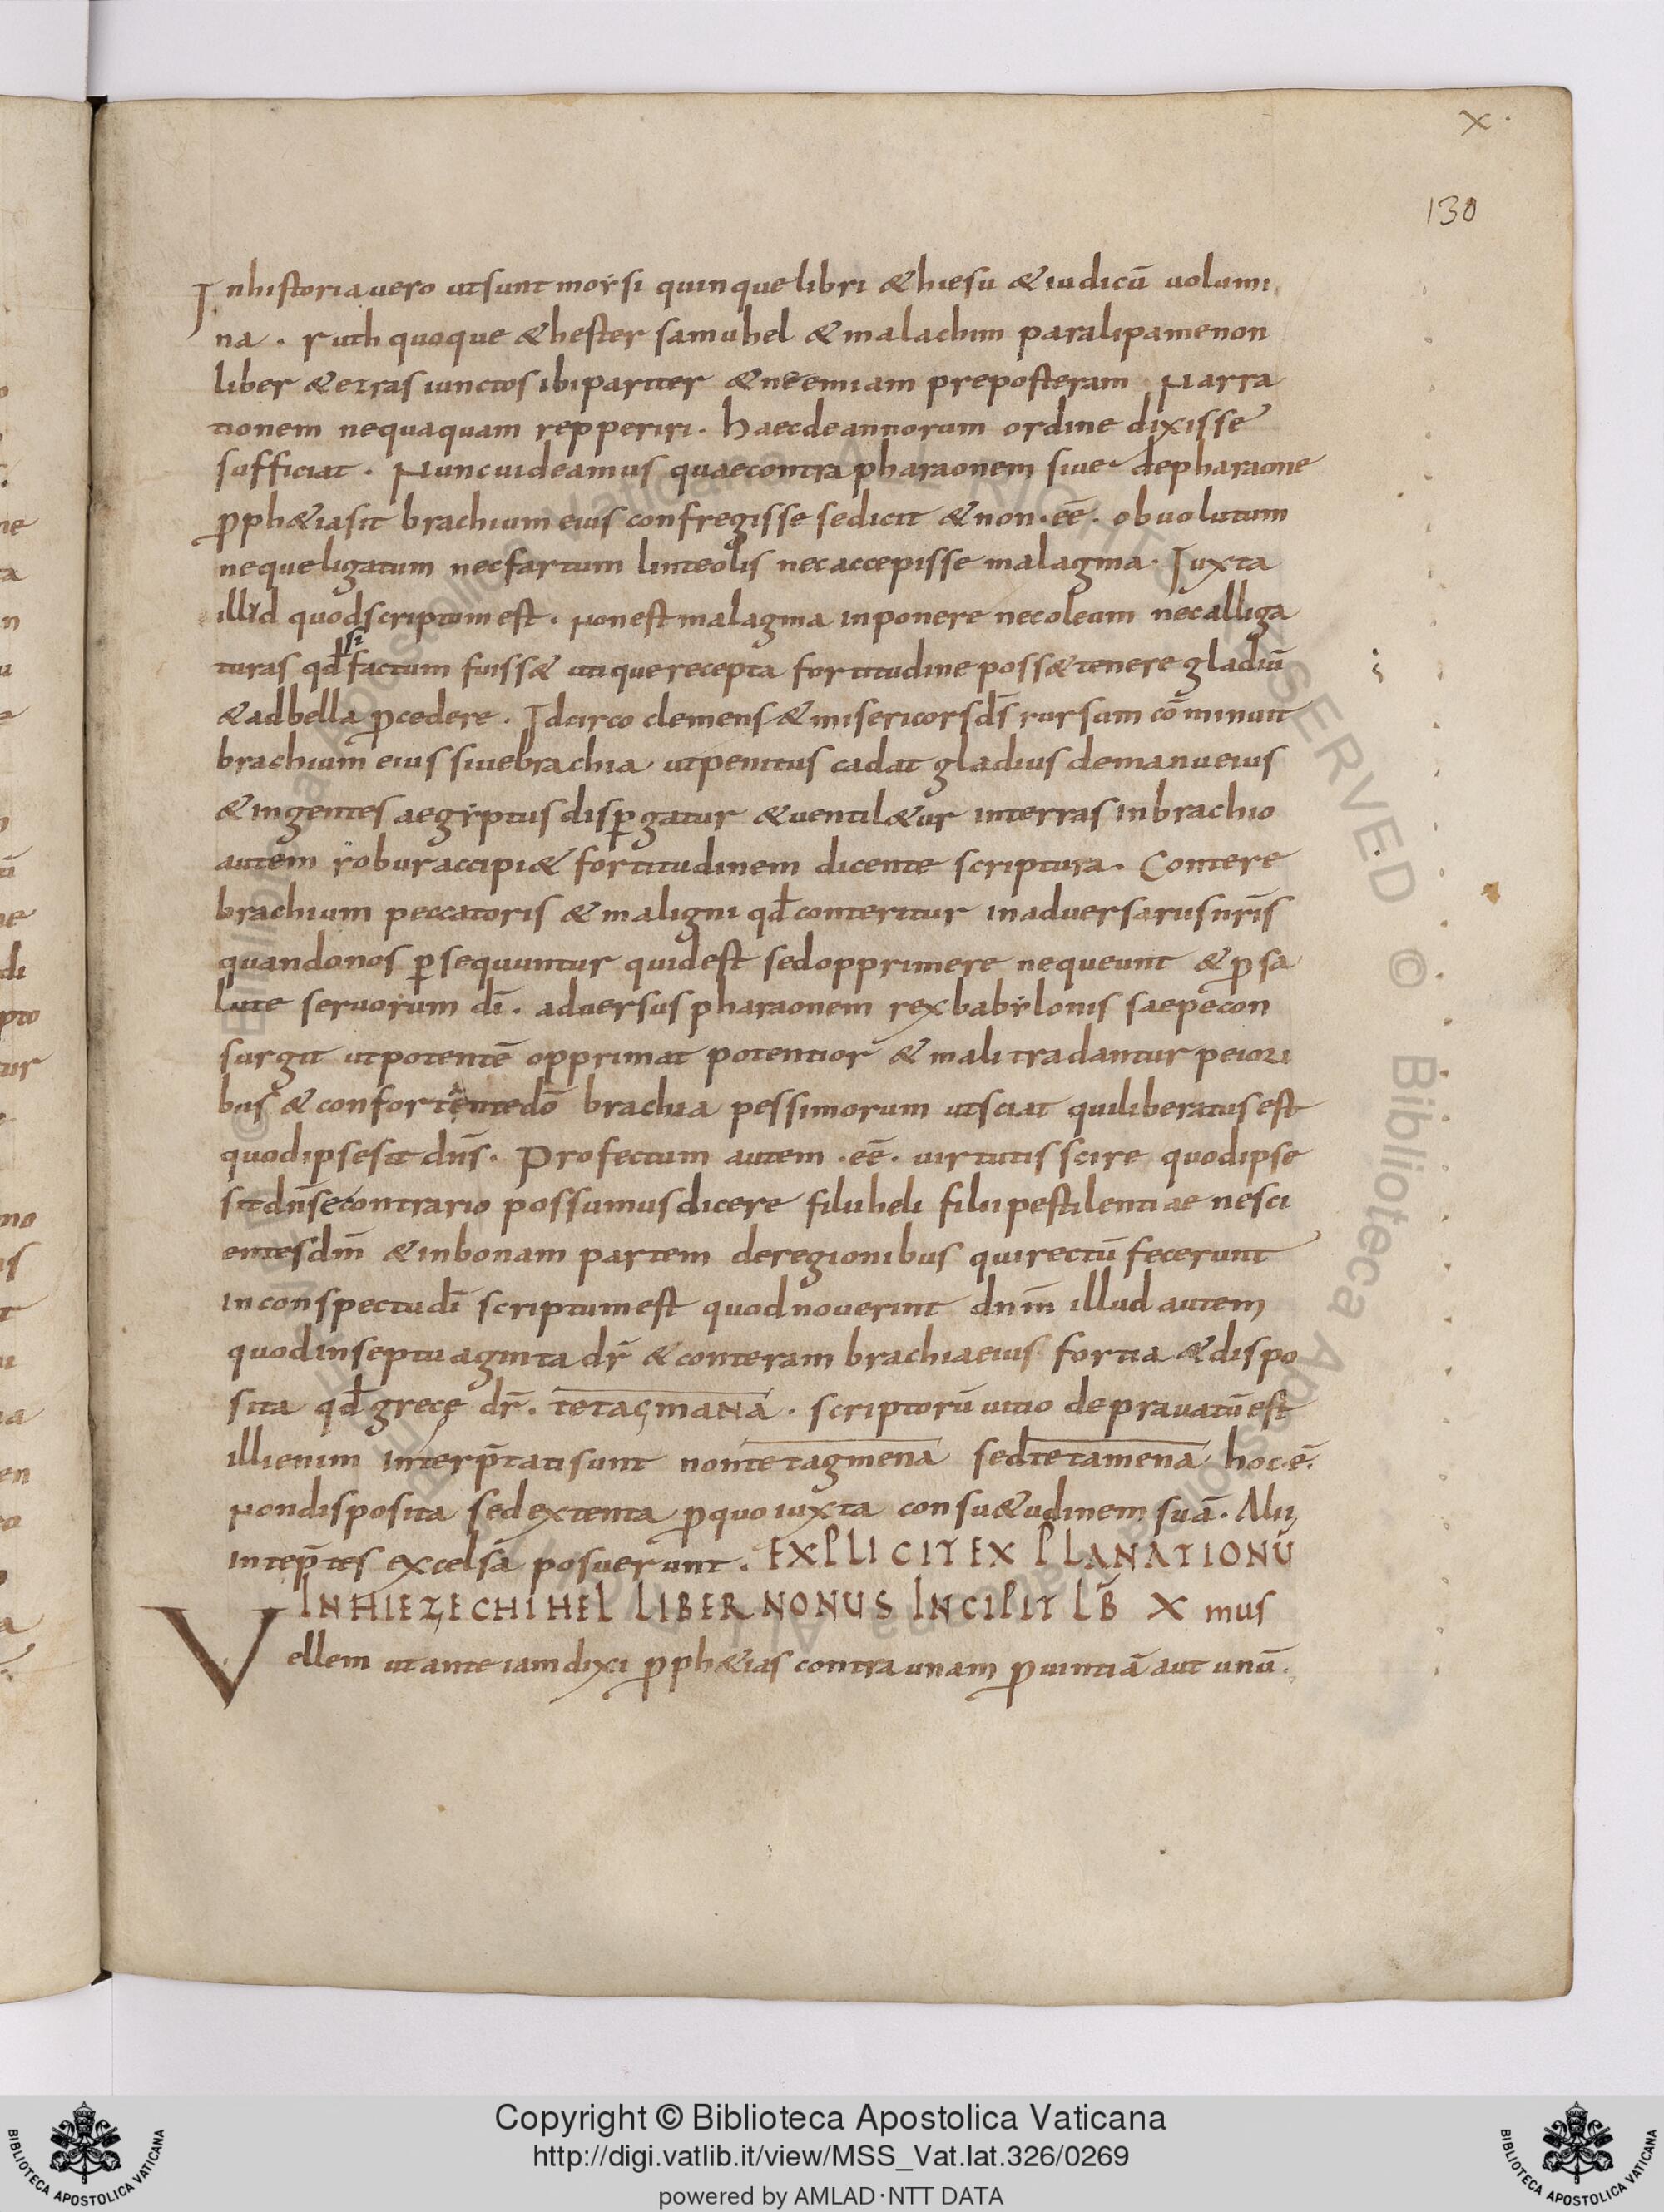 X.
130
Inhistoria uero utsunt moẏsi quinque libri &hiesu &iudicū uolumi
na. ruth quoque &hester samuhel &malachim paralipamenon
liber &ezras iunctos ibi pariter &neemiam preposteram Narra
tionem nequaquam repperiri. haecdeannorum ordine dixisse
sufficiat. Nuncuideamus quaecontra pharaonem siue depharaone
ꝓph&iasit brachium eius confregisse sedicit &non.eē. obuolutum
nequeligatum necfartum linteolis necaccepisse malagma. Iuxta
illud quodscriptumest. Nonestmalagma inponere necoleum necalliga
turas qđ si factum fuiss& utiquerecepta fortitudine poss&tenere gladiū
&adbella ꝓcedere. Idcirco clemens &misericorsd̄s rursum cōminuit
brachium eius siuebrachia utpenitus cadat gladius demanueius
&ingentes aegẏptus disꝑgatur &uentil&ur interras inbrachio
autem robur accipi& fortitudinem dicente scriptura. Contere
brachium peccatoris &maligni qđconteritur inaduersariisnr̄is
quandonos ꝑsequuntur quidest sedopprimere nequeunt &ꝓsa
lute seruorum dī. aduersus pharaonem rexbabẏlonis saepecon
surgit utpotentē opprimat potentior &mali tradantur peiori
bus &confortentedō brachia pessimorum utsciat quiliberatusest
quodipsesit dn̄s. Profectum autem .eē. uirtutis scire quodipse
sitdn̄secontrario possumusdicere filiiheli filiipestilentiae nesci
entesdn̄m &inbonam partem deregionibus quirectū fecerunt
inconspectudī scriptumest quodnouerint dn̄m illud autem
quodinseptuaginta dr̄ &conteram brachiaeius fortia &dispo
sita qđ grecę dr̄. tetaꞔmana. scriptorū uitio deprauatūest
illienim interp̄tatisunt nontetagmena sedtetamena hoc.ē.
Nondisposita sedextenta ꝓquo iuxta consu&udinem suā. Alii
intep̄tes excelsa posuerunt. EXPLICIT EXPLANATIONŪ
INHIEZECHIHEL LIBER NONUS INCIPIT LB̄ X mus
Vellem utante iamdixi ꝓph&ias contra unam ꝓuintiā aut unū.
Copyright © Biblioteca Apostolica Vaticana
http://digi.vatlib.it/view/MSS_Vat.lat.326/0269
powered by AMLAD·NTT DATA
BIBLIOTECA APOSTOLICA VATICANA
BIBLIOTECA APOSTOLICA VATICANA